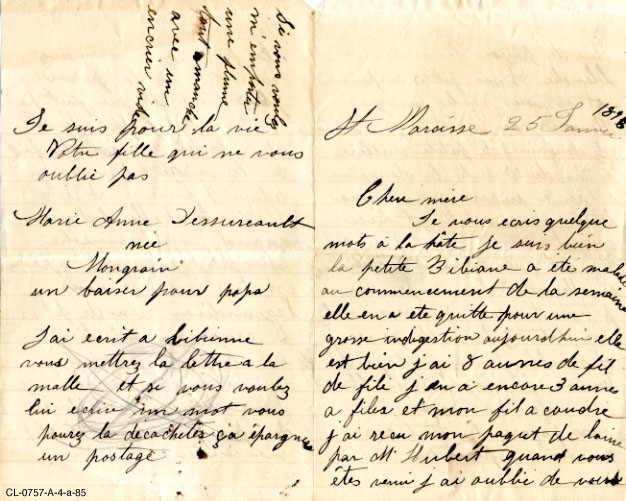 St Narcisse 25 Janvier 1898
Chere mère
Je vous ecris quelque
mots à la hâte je suis bien
la petite Bibiane a été malade
au commencement de la semaine
elle en a été quitte pour une
grosse indigestion aujourdhui elle
est bien j'ai 8 aunes de fil
de filé j en a encore 3 aunes
a filer et mon fil a coudre
j'ai recu mon paquet de laine
par Mr Hubert quand vous
êtes venu j'ai oublié de vous
Je suis pour la vie
Votre fille qui ne vous
oublie pas
Marie Anne Dessureault
née
Mongrain
un baiser pour papa
J'ai ecrit a
vous mettrez la lettre a la
malle et si vous voulez
lui ecrire un mot vous
pourez la décacheter ça épargne
un postage
Si vous voulez
m'emporter
une plume
tout amanchée
avec un
encrier vide
CL-0757-A-4-a-85